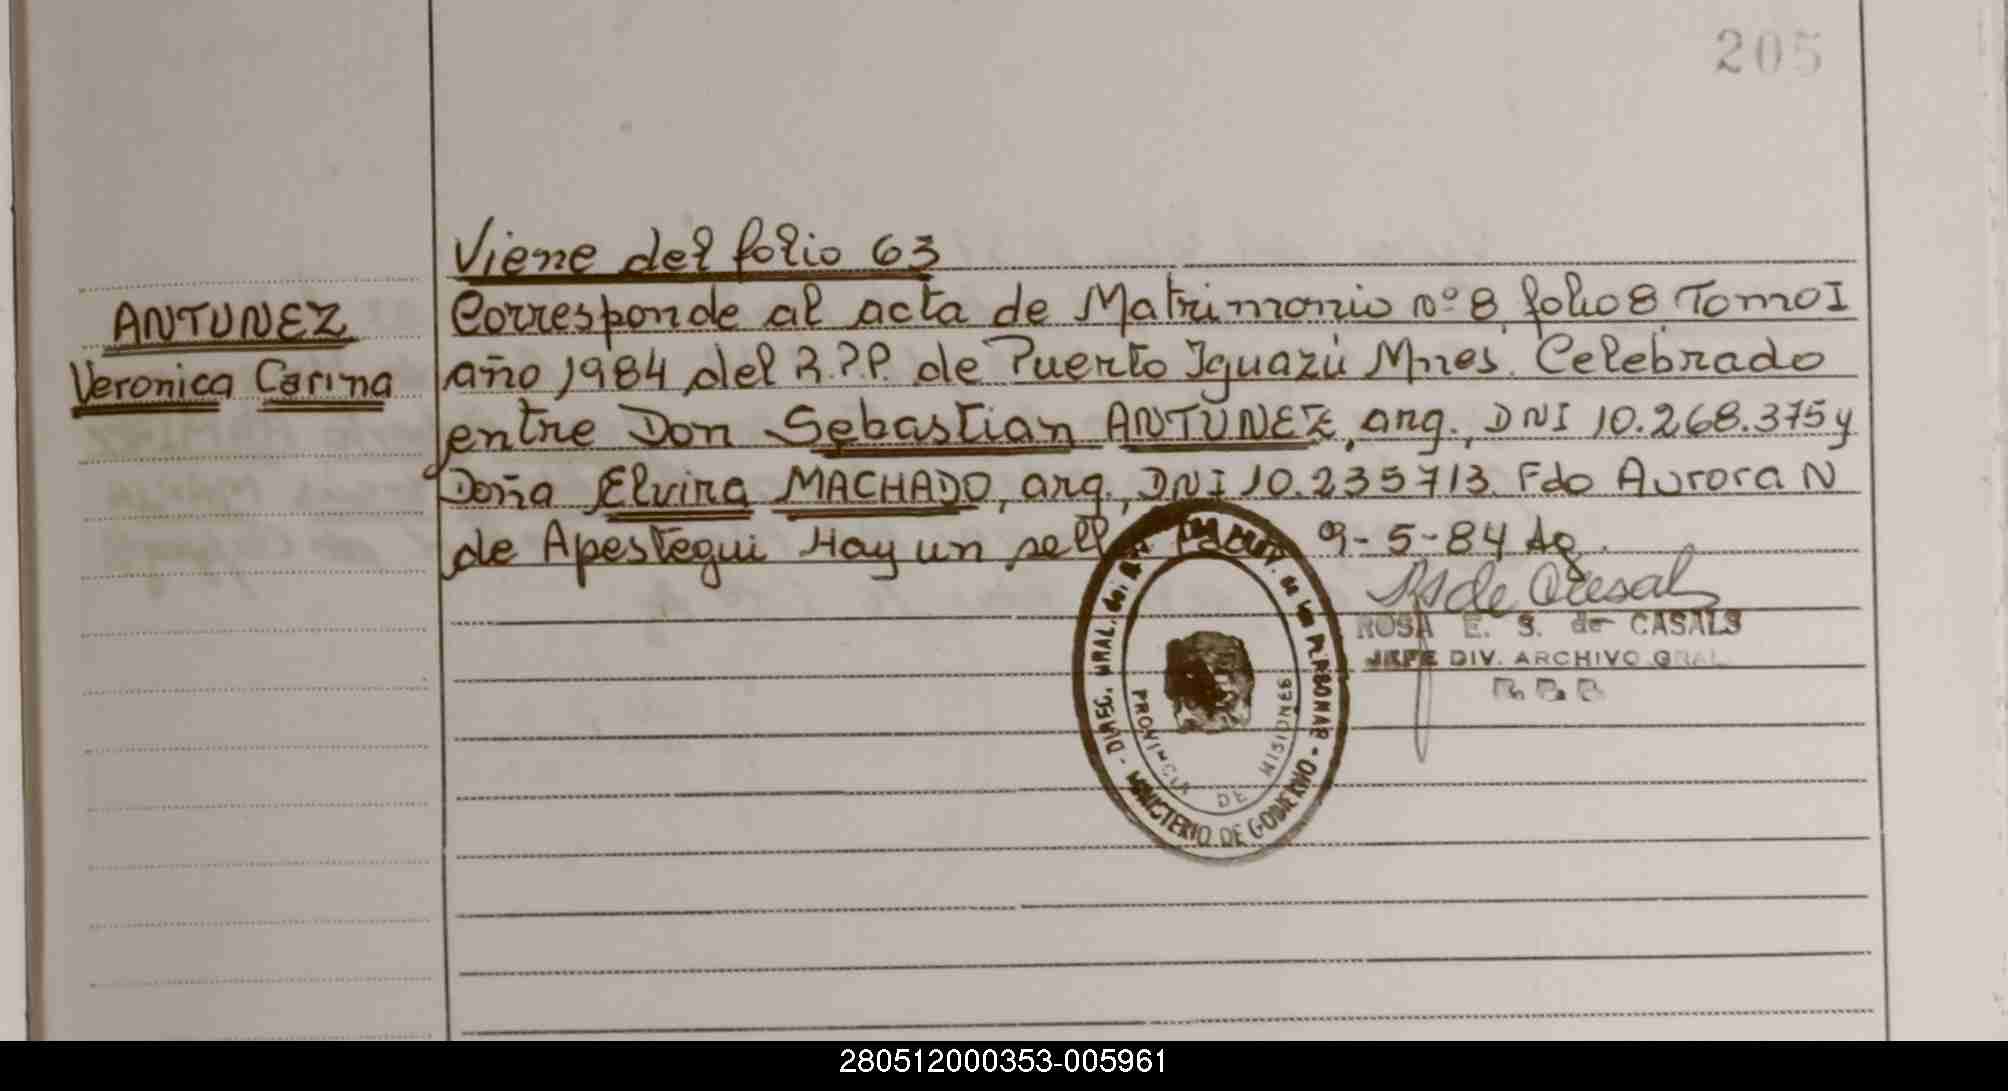 205
Viene del folio 63
ANTUNEZ
Veronica Carina
Corresponde al acta de Matrimonio nº 8 folio 8 Tomo I
año 1984 del R.P.P. de Puerto Iguazú Mnes. Celebrado
entre Don Sebastian ANTUNEZ, arg., DNI 10.268.375 y
Doña Elvira MACHADO, arg., DNI 10.235713. Fdo Aurora N
de Apestegui Hay un sell 9-5-84 Ag.
ROSA E. S. de CASALS
JEFE DIV. ARCHIVO GRAL
DIREC. GRAL. del
de las PERSONAS - MINISTERIO DE GOBIERNO -
PROVINCIA DE MISIONES
280512000353-005961